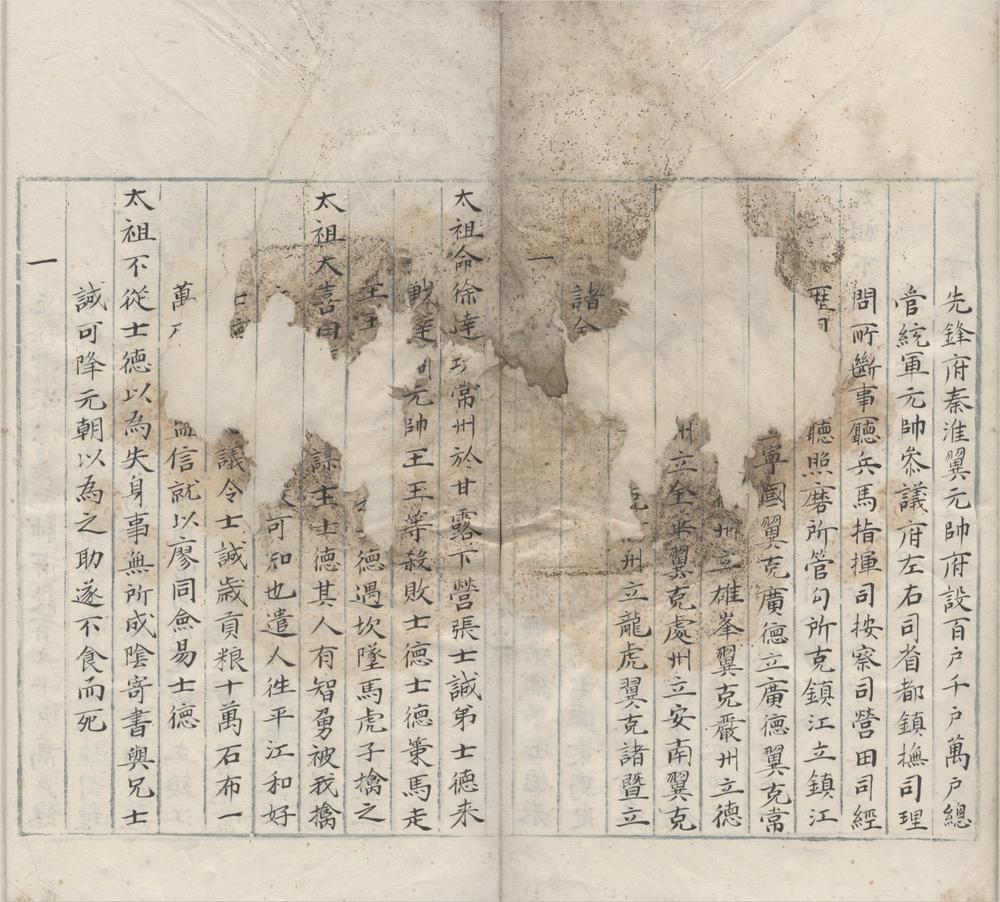 先鋒府秦淮翼元帥府設百戶千戶萬戶總
官統軍元帥叅議府左右司省都鎮撫司理
問所斷事廳兵馬指揮司按察司營田司經
歷司聽照磨所管勾所克鎮江立鎮江
寧國翼克廣德立廣德翼克常
州立雄峯翼克嚴州立德
州立全華翼克處州立安南翼克
州立龍虎翼克諸暨立
諸全
一
太祖命徐達攻常州於甘露下營張士誠弟士德来
戰達元帥王玉等殺敗士德士德策馬走
王玉德遇坎墜馬虎子擒之
太祖大喜曰謀主士德其人有智勇被我擒
可知也遣人徃平江和好
士誠議令士誠歲貢粮十萬石布一
萬信就以廖同僉易士德
太祖不從士德以為失身事無所成陰寄書與兄士
誠可降元朝以為之助遂不食而死
一